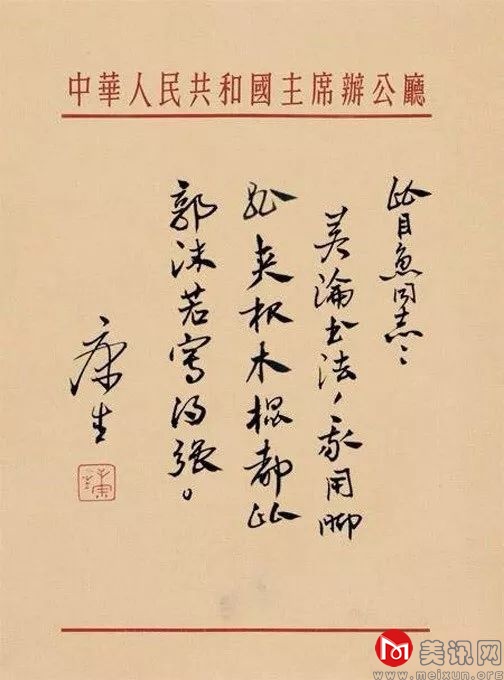 中華人民共和國主席辦公廳
比目魚同志：
若論书法，我用脚
趾夹根木棍都比
郭沫若寫得强。
康生
美讯网
www.meixun.org